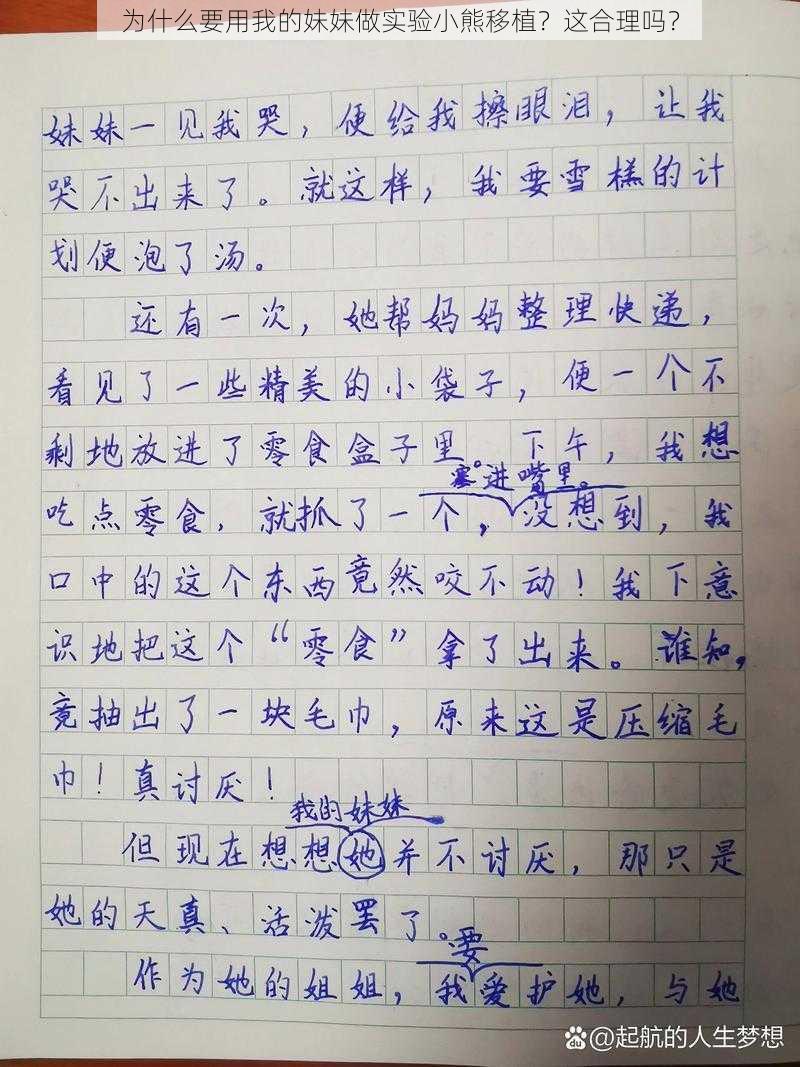 为什么要用我的妹妹做实验小熊移植？这合理吗？
妹妹一见我哭，便给我擦眼泪，让我
哭不出来了。就这样，我要雪糕的计
划便泡了汤。
还有一次，她帮妈妈整理快递，
看见了一些精美的小袋子，便一个不
剩地放进了零食盒子里。下午，我想
塞进嘴里。
吃点零食，就抓了一个，没想到，我
口中的这个东西竟然咬不动！我下意
识地把这个“零食”拿了出来。谁知，
竟抽出了一块毛巾，原来这是压缩毛
巾！真讨厌！
我的妹妹
但现在想想她并不讨厌，那只是
她的天真、活泼罢了。
要
作为她的姐姐，我爱护她，与她
Bai du @起航的人生梦想